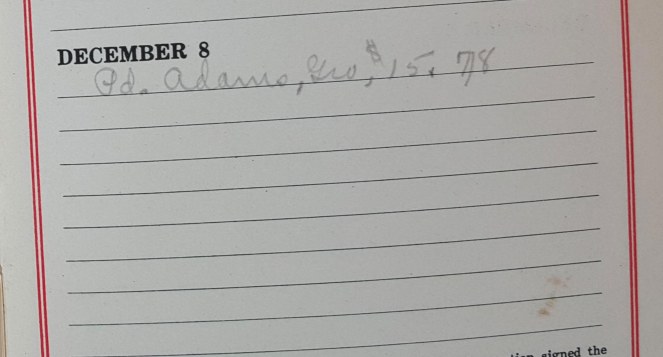 DECEMBER 8
Pd. Adams, Geo, $15.78
signed the